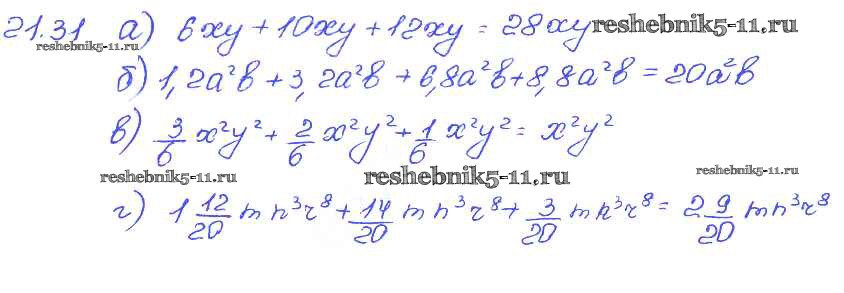 21.31 а) 6xy + 10xy + 12xy = 28xy reshebnik5-11.ru
reshebnik5-11.ru
б) 1,2a²b + 3,2a²b + 6,8a²b + 8,8a²b = 20a²b
в) 3/6 x²y² + 2/6 x²y² + 1/6 x²y² = x²y²
reshebnik5-11.ru reshebnik5-11.ru reshebnik5-11.ru
г) 1 12/20 mn³r⁸ + 14/20 mn³r⁸ + 3/20 mn³r⁸ = 2 9/20 mn³r⁸